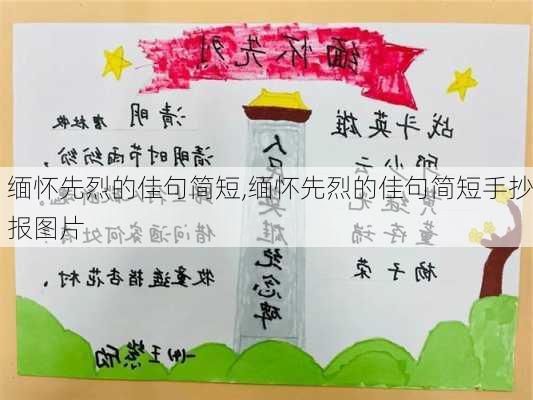 缅怀先烈
清明
唐 杜牧
清明时节雨纷纷,
借问酒家何处有
牧童遥指杏花村。
人民英雄纪念碑
战斗英雄
邱少云
黄继光
董存瑞
杨子荣
缅怀先烈的佳句简短,缅怀先烈的佳句简短手抄
报图片